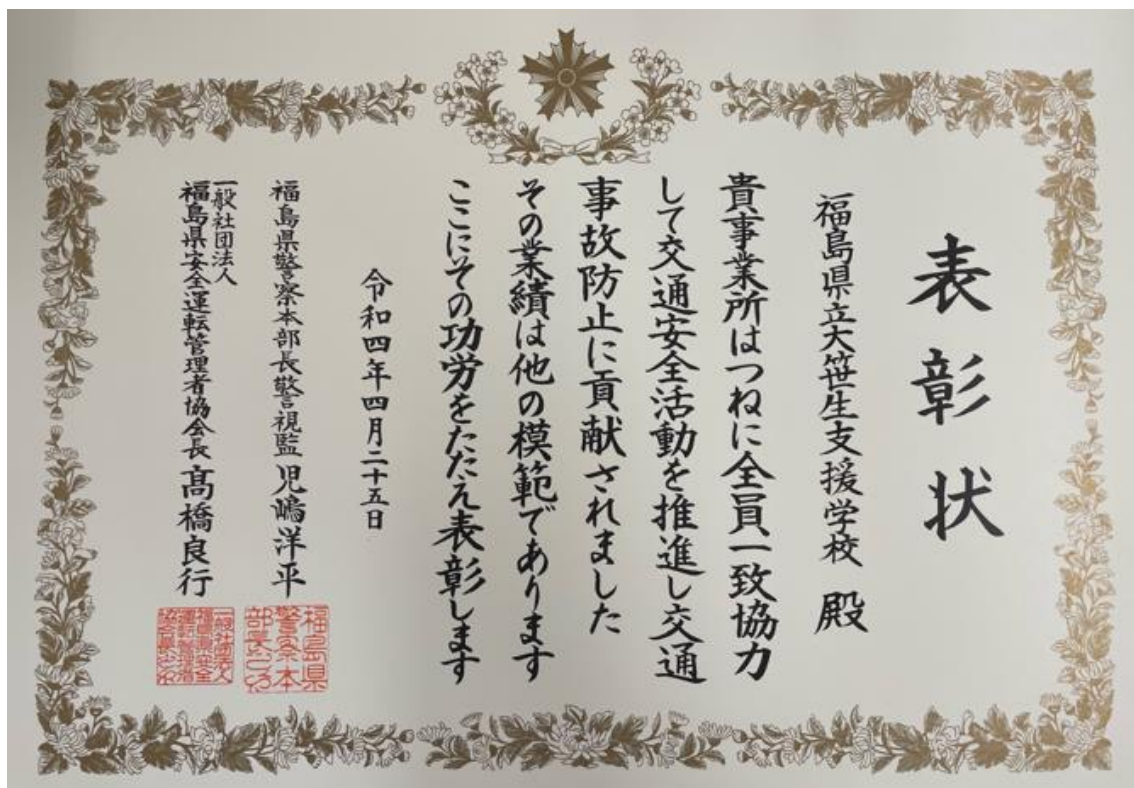 表彰状
福島県立大笹生支援学校 殿
貴事業所はつねに全員一致協力
して交通安全活動を推進し交通
事故防止に貢献されました
その業績は他の模範であります
ここにその功労をたたえ表彰します
令和四年四月二十五日
福島県警察本部長警視監 児嶋洋平
一般社団法人
福島県安全運転管理者協会長 髙橋良行
福島県
警察本
部長之印